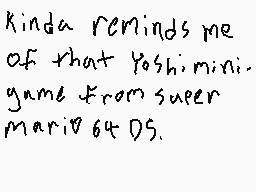 Kinda reminds me
of that Yoshi mini-
game from super
mario 64 DS.